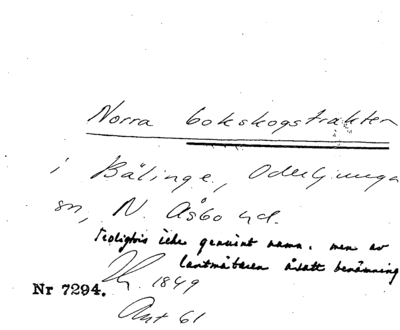 Norra bokskogstrakten
i Bälinge, Oderljunga
sn, N. Åsbo hd.
Troligtvis icke genuint namn. men av
lantmätaren åsatt benämning
1849
Nr 7294.
Akt 61